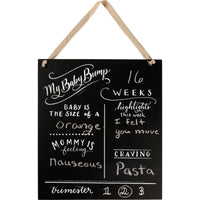 My Baby Bump
BABY IS
THE SIZE OF A
Orange
MOMMY IS
feeling
Nauseous
16
WEEKS
highlights
this week
I felt
you move
CRAVING
Pasta
trimester 1 2 3